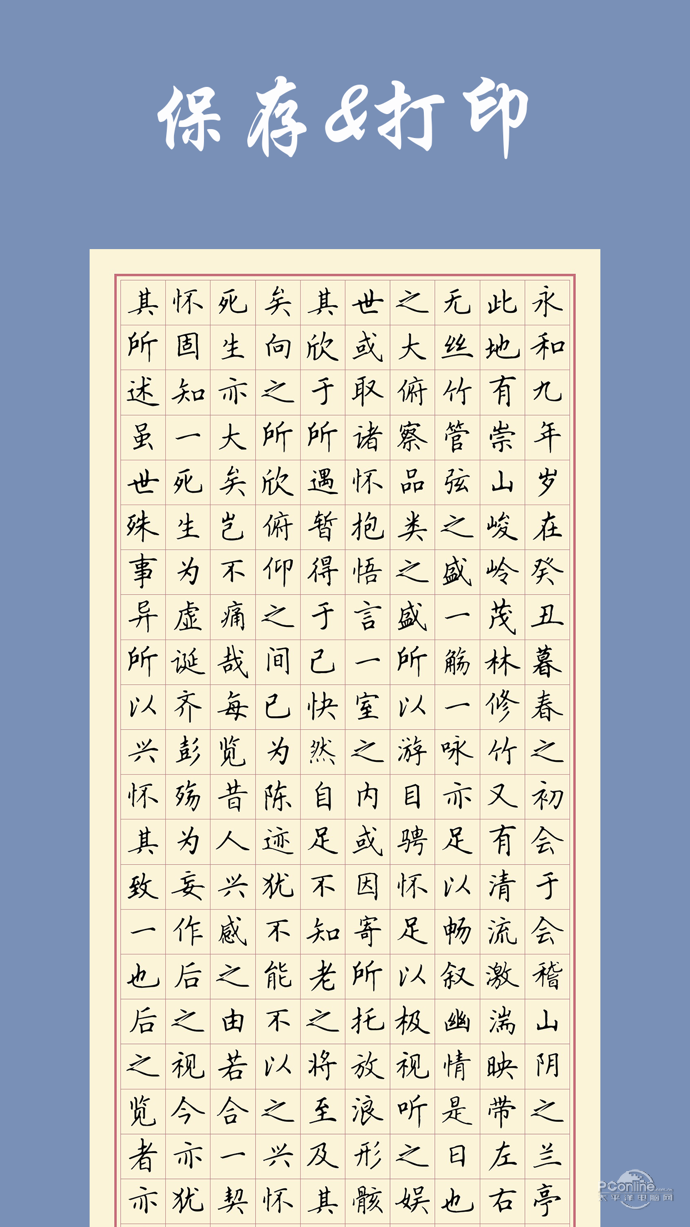 保存&打印
永和九年岁在癸丑暮春之初会于会稽山阴之兰亭
此地有崇山峻岭茂林修竹又有清流激湍映带左右
无丝竹管弦之盛一觞一咏亦足以畅叙幽情是日也
之大俯察品类之盛所以游目骋怀足以极视听之娱
世或取诸怀抱悟言一室之内或因寄所托放浪形骸
其欣于所遇暂得于己快然自足不知老之将至及其
矣向之所欣俯仰之间已为陈迹犹不能不以之兴怀
死生亦大矣岂不痛哉每览昔人兴感之由若合一契
怀固知一死生为虚诞齐彭殇为妄作后之视今亦犹
其所述虽世殊事异所以兴怀其致一也后之览者亦
PConline
太平洋电脑网